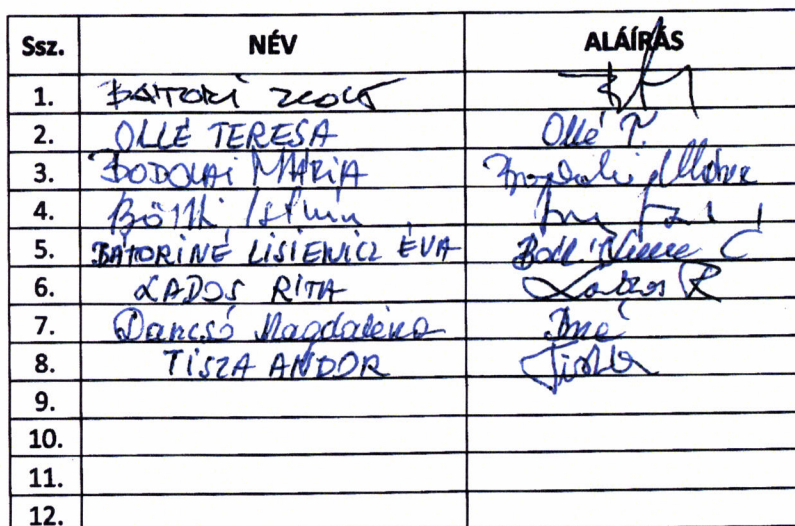 Ssz. NÉV ALÁÍRÁS
1. BATORI ZSOLT
2. OLLÉ TERESA Ollé T.
3. BODOLAI MÁRIA
4. István
5. BÁTORINÉ LISIEWICZ ÉVA
6. LADOS RITA Lados R
7. Dancsó Magdaléna
8. TISZA ANDOR Tisza
9.
10.
11.
12.